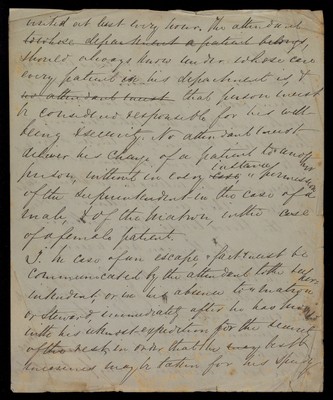 visited at least every hour. The attendant
to whose department a patient belongs,
should always know under whose care
every patient in his department is, &
no attendant must that person must
be considered responsible for his well-
being & security. No attendant must
deliver his charge of a patient to another
person, without in every case instance permission
of the Superintendent in the case of a
male, & of the Matron, in the case
of a female patient.
J. In case of an escape, the fact must be
communicated by the attendant to the Super-
intendent, or in his absence to the matron
or Steward, immediately after he has
with his utmost expedition for the
of the rest, in order that the may best
measures may be taken for his speedy